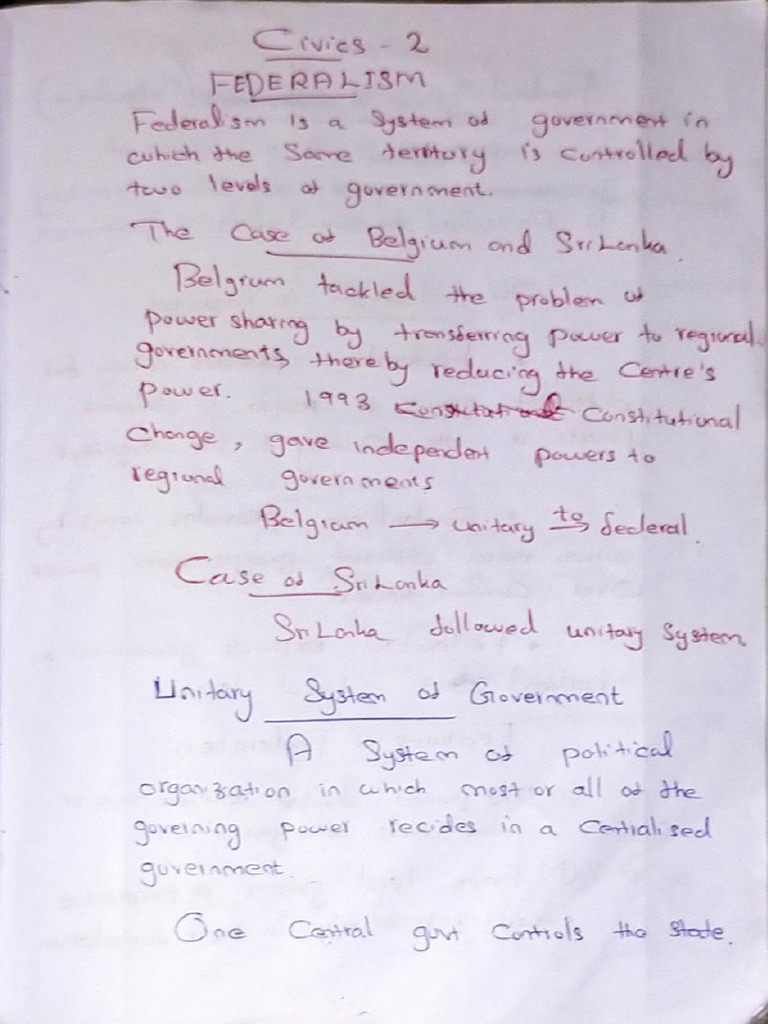 Civics - 2
FEDERALISM
Federalism is a System of government in
which the Same territory is controlled by
two levels of government.
The Case of Belgium and Sri Lanka.
Belgium tackled the problem of
power sharing by transferring power to regional
governments, thereby reducing the Centre's
power. 1993 Constitutional
Change, gave independent powers to
regional governments
Belgium → unitary to → federal.
Case of Sri Lanka
Sri Lanka followed unitary System.
Unitary System of Government
A System of political
organization in which most or all of the
governing power recides in a Centralised
government.
One Central govt Controls the State.